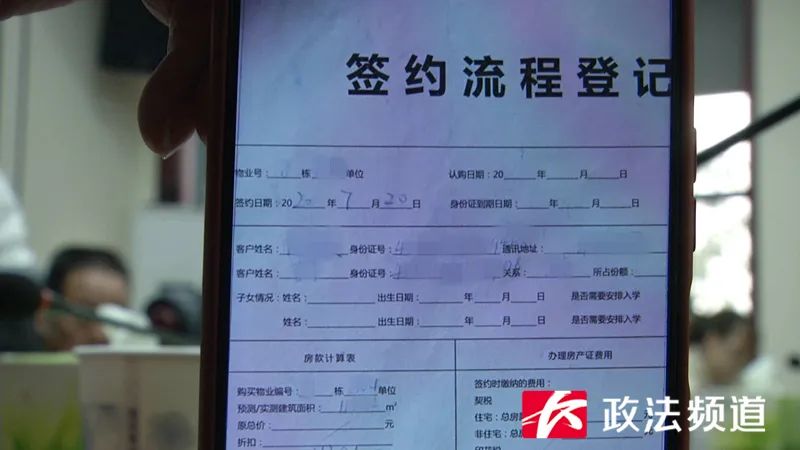 签约流程登记
物业号：____栋____单位 认购日期：20____年____月____日
签约日期：2020年7月20日 身份证到期日期：____年____月____日
客户姓名： 身份证号：4 通讯地址：
客户姓名： 身份证号： 关系： 所占份额：
子女情况：姓名：____ 出生日期：____年____月____日 是否需要安排入学
姓名：____ 出生日期：____年____月____日 是否需要安排入学
房款计算表 办理房产证费用
购买物业编号：____栋____单位 签约时缴纳的费用：
预测/实测建筑面积：____m² 契税
原总价：____元 住宅：总房
折扣： 非住宅：总房
印花税
政法频道